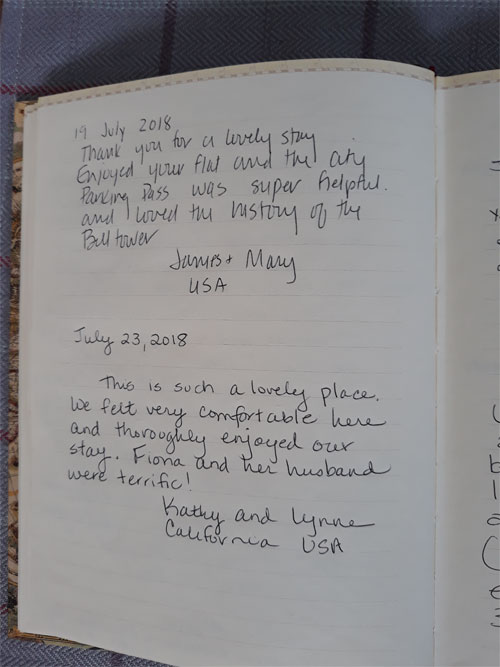 19 July 2018
Thank you for a lovely stay
Enjoyed your flat and the city
Parking Pass was super helpful.
and loved the history of the
Bell tower
James + Mary
USA
July 23, 2018
This is such a lovely place.
We felt very comfortable here
and thoroughly enjoyed our
stay. Fiona and her husband
were terrific!
Kathy and Lynne
California USA